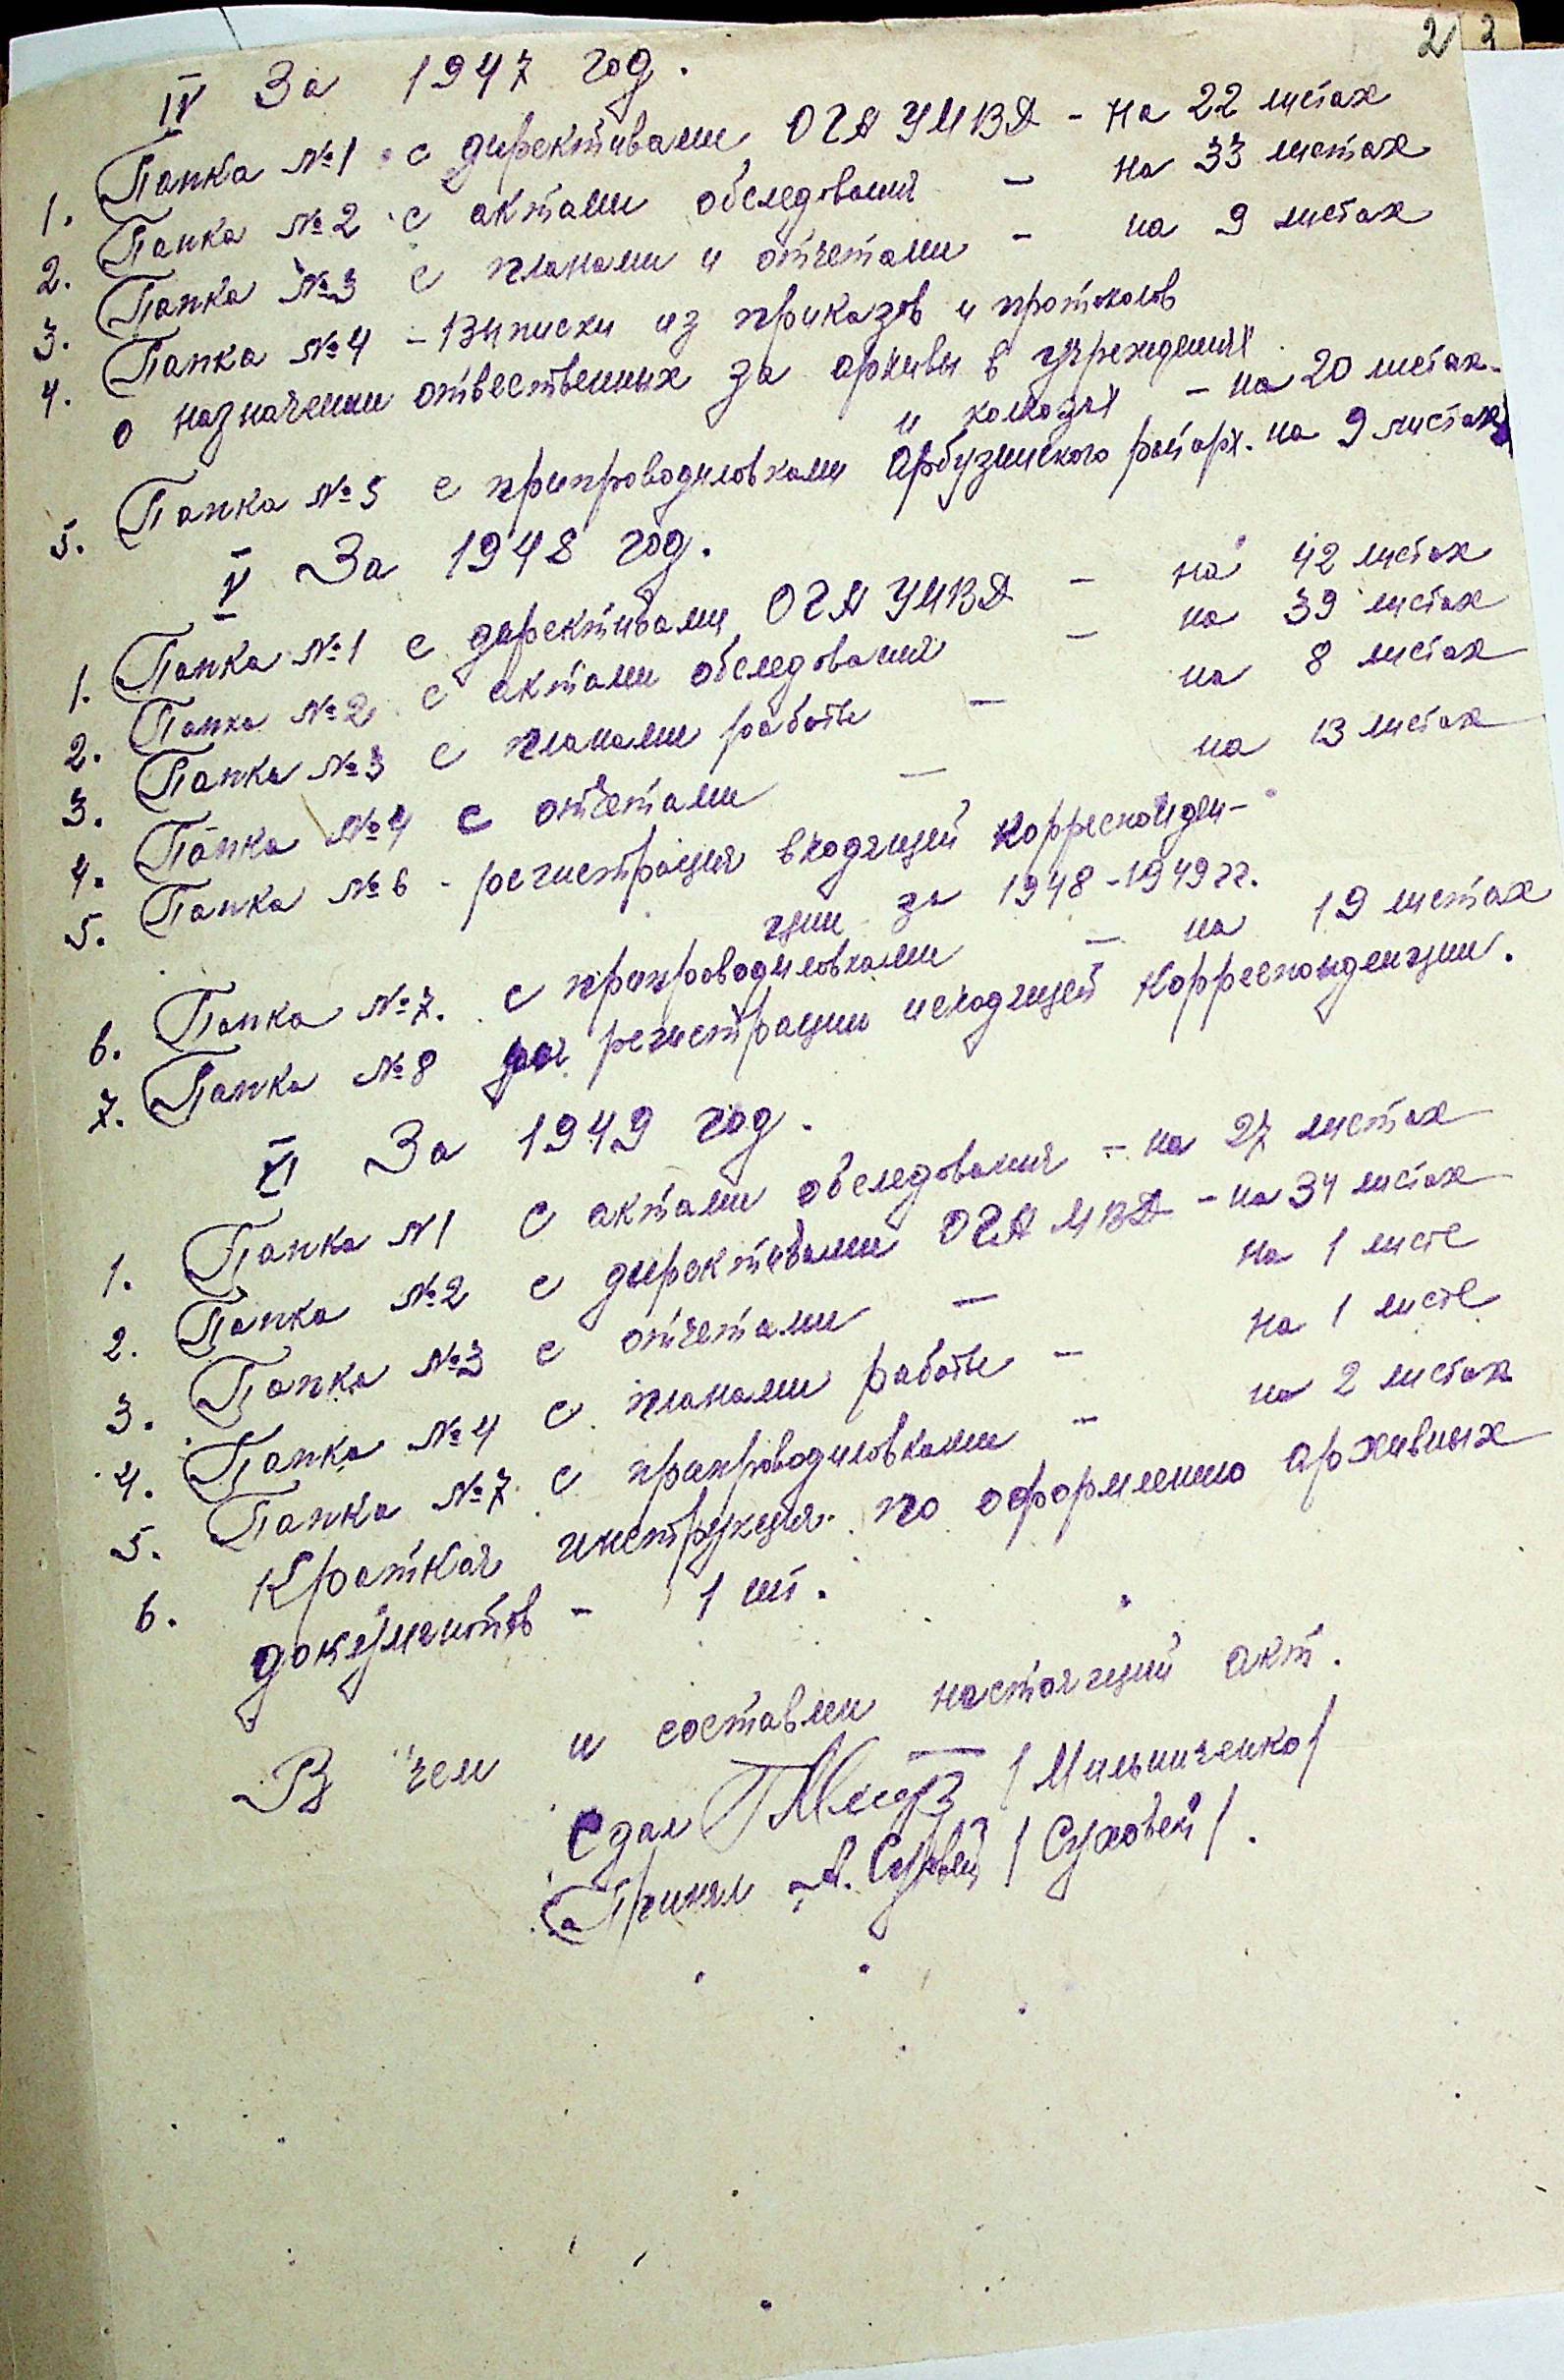 2 3
IV За 1947 год.
1. Папка №1 с директивами ОГА УМВД - на 22 листах
2. Папка №2 с актами обследования - на 33 листах
3. Папка №3 с планами и отчетами - на 9 листах
4. Папка №4 - Выписки из приказов и протоколов
о назначении ответственных за архивы в учреждениях
и колхозах - на 20 листах.
5. Папка №5 с припроводиловками Арбузинского райарх. на 9 листах
V За 1948 год.
1. Папка №1 с дерективами ОГА УМВД - на 42 листах
2. Папка №2 с актами обследования - на 39 листах
3. Папка №3 с планами работы - на 8 листах
4. Папка №4 с отчетами - на 13 листах
5. Папка №6 - регистрация входящий корреспонден-
ции за 1948-1949 гг.
6. Папка №7. с припроводиловками - на 19 листах
7. Папка №8 для регистрации исходящей корреспонденции.
VI За 1949 год.
1. Папка №1 с актами обследования - на 27 листах
2. Папка №2 с директивами ОГА МВД - на 34 листах
3. Папка №3 с отчетами - на 1 листе
4. Папка №4 с планами работы - на 1 листе
5. Папка №7 с припроводиловками - на 2 листах
6. Краткая инструкция по оформлению архивных
документов - 1 шт.
В чем и составлен настоящий акт.
Сдал /Мильниченко/
Принял А. Суховей /Суховей/.